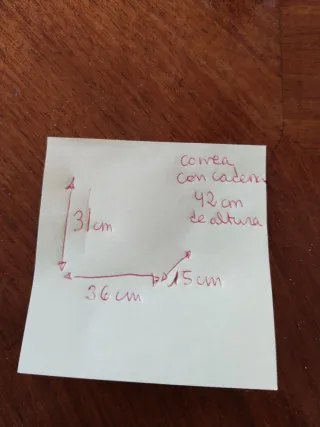 correa
con cadena
42 cm
de altura
31cm
15 cm
36 cm